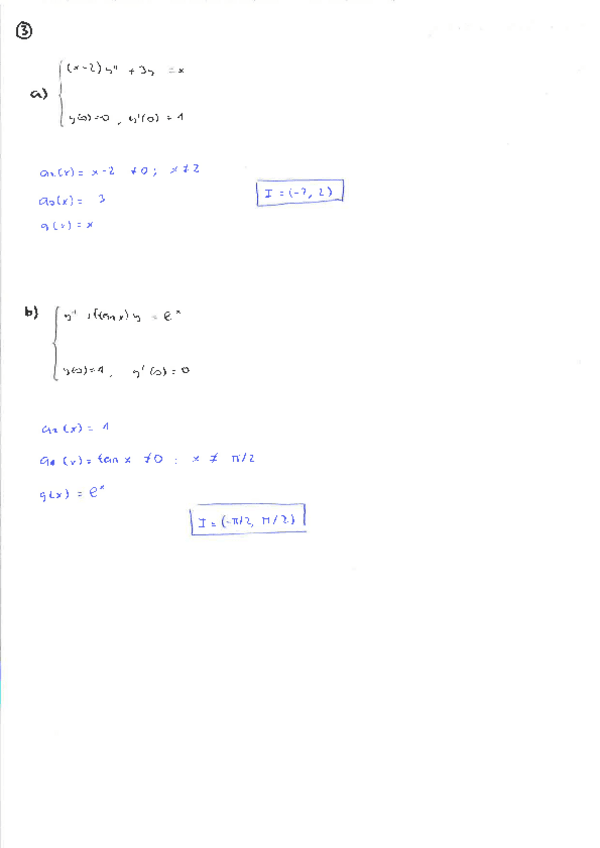 ③
a) (x-2) y'' + 3y = x
y(0)=0, y'(0) = 1
a₂(x) = x-2 ≠0; x≠2
a₀(x) = 3
g(x) = x
I = (-2, 2)
b) y'' + (tan x) y = eˣ
y(0)=1, y'(0) = 0
a₂(x) = 1
a₀(x) = tan x ≠0 : x ≠ π/2
g(x) = eˣ
I = (-π/2, π/2)